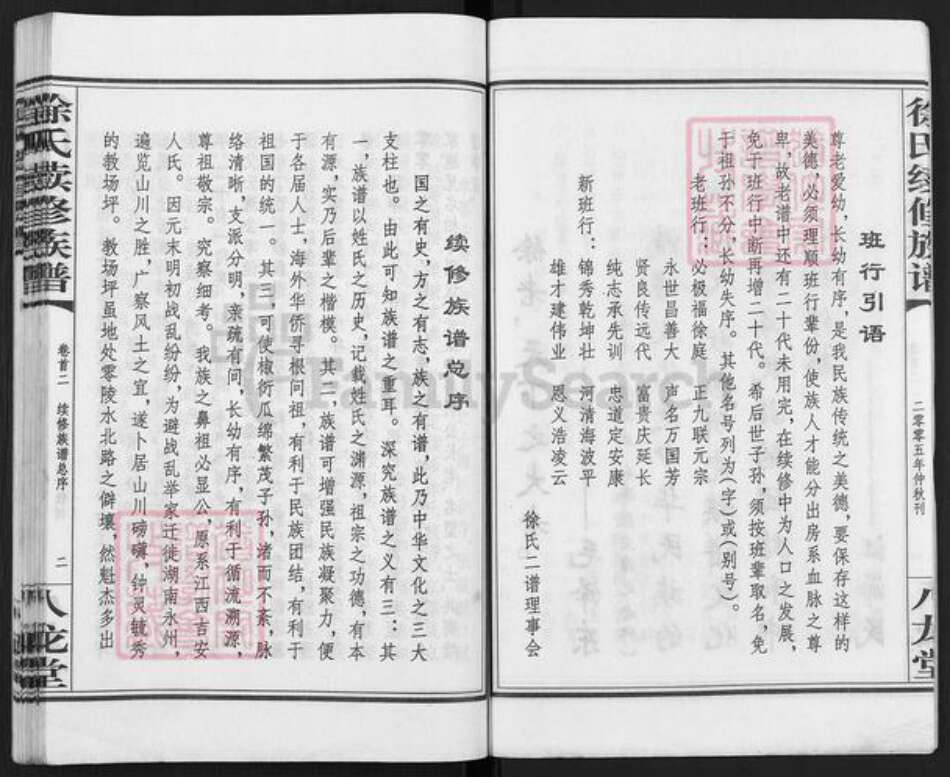 徐氏续修族谱
二零零五年仲秋刊
八龙堂
班行引语
尊老爱幼,长幼有序,是我民族传统之美德,要保存这样的
美德,必须理顺班行辈份,使族人才能分出房系血脉之尊
卑,故老谱中还有二十代未用完,在续修中为人口之发展,
免于班行中断再增二十代。希后世子孙,须按班辈取名,免
于祖孙不分,长幼失序。其他名号列为(字)或(别号)。
老班行:必极福徐庭 正九联元宗
永世昌善大 声名万国芳
贤良传远代 富贵庆延长
纯志承先训 忠道定安康
新班行:锦秀乾坤壮 河清海波平
雄才建伟业 恩义浩凌云
徐氏二谱理事会
续修族谱总序
国之有史,方之有志,族之有谱,此乃中华文化之三大
支柱也。由此可知族谱之重耳。深究族谱之义有三:其
一,族谱以姓氏之历史,记载姓氏之渊源,祖宗之功德,有本
有源,实乃后辈之楷模。其二,族谱可增强民族凝聚力,便
于各届人士,海外华侨寻根问祖,有利于民族团结,有利于
祖国的统一。其三,可使椒衍瓜绵繁茂子孙,渚而不紊,脉
络清晰,支派分明,亲疏有间,长幼有序,有利于循流溯源,
尊祖敬宗。究察细考。我族之鼻祖必显公,原系江西吉安
人氏。因元末明初战乱纷纷,为避战乱举家迁徒湖南永州,
遍览山川之胜,广察风土之宜,遂卜居山川磅礴,钟灵毓秀
的教场坪。教场坪虽地处零陵水北路之僻壤,然魁杰多出
徐氏续修族谱
卷首二 续修族谱总序
二
八龙堂
FamilySearch